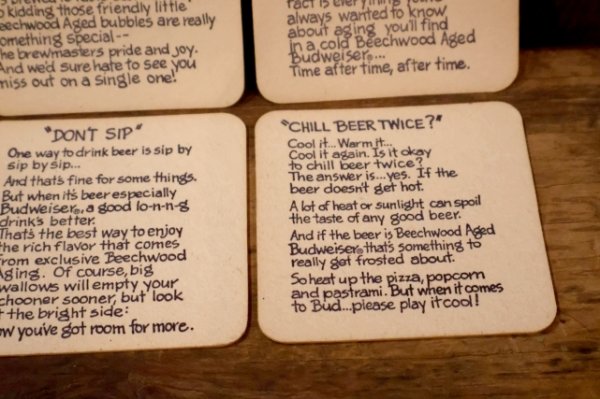 kidding those friendly little
Beechwood Aged bubbles are really
something special--
the brewmasters pride and joy.
And we'd sure hate to see you
miss out on a single one!
fact is everything you've
always wanted to know
about aging you'll find
in a cold Beechwood Aged
Budweiser®...
Time after time, after time.
"DON'T SIP"
One way to drink beer is sip by
sip by sip...
And that's fine for some things.
But when it's beer especially
Budweiser®, a good lo-n-n-g
drink's better.
That's the best way to enjoy
the rich flavor that comes
from exclusive Beechwood
Aging. Of course, big
swallows will empty your
schooner sooner, but look
at the bright side:
you've got room for more.
"CHILL BEER TWICE?"
Cool it... Warm it...
Cool it again. Is it okay
to chill beer twice?
The answer is...yes. If the
beer doesn't get hot.
A lot of heat or sunlight can spoil
the taste of any good beer.
And if the beer is Beechwood Aged
Budweiser® that's something to
really get frosted about.
So heat up the pizza, popcorn
and pastrami. But when it comes
to Bud...please play it cool!